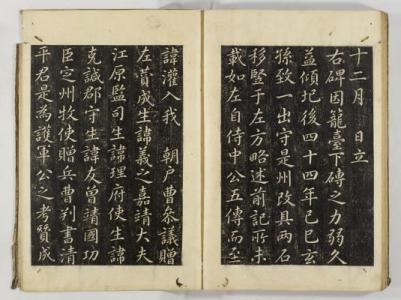 十二月　日立
右碑因籠臺下磚之力弱久
益傾圮後四十四年己巳玄
孫致一出守是州改具兩石
移竪于左方略述前記所未
載如左自侍中公五傳而至
諱灌入我　朝戶曹參議贈
左賛成生諱義之嘉靖大夫
江原監司生諱理府使生諱
克誠郡守生諱友曾靖國功
臣定州牧使贈兵曹判書清
平君是為護軍公之考贊成